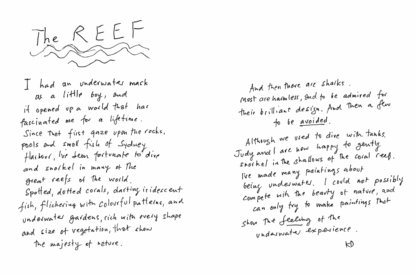 The REEF
I had an underwater mask
as a little boy, and
it opened up a world that has
fascinated me for a lifetime.
Since that first gaze upon the rocks,
pools and small fish of Sydney
Harbour, I've been fortunate to dive
and snorkel in many of the
great reefs of the world.
Spotted, dotted corals, darting iridescent
fish, flickering with colourful patterns, and
underwater gardens, rich with every shape
and size of vegetation, that show
the majesty of nature.
And then there are sharks.
Most are harmless, and to be admired for
their brilliant design. And then a few
to be avoided.
Although we used to dive with tanks,
Judy and I are now happy to gently
snorkel in the shallows of the coral reef.
I've made many paintings about
being underwater. I could not possibly
compete with the beauty of nature, and
can only try to make paintings that
show the feeling of the
underwater experience.
KD